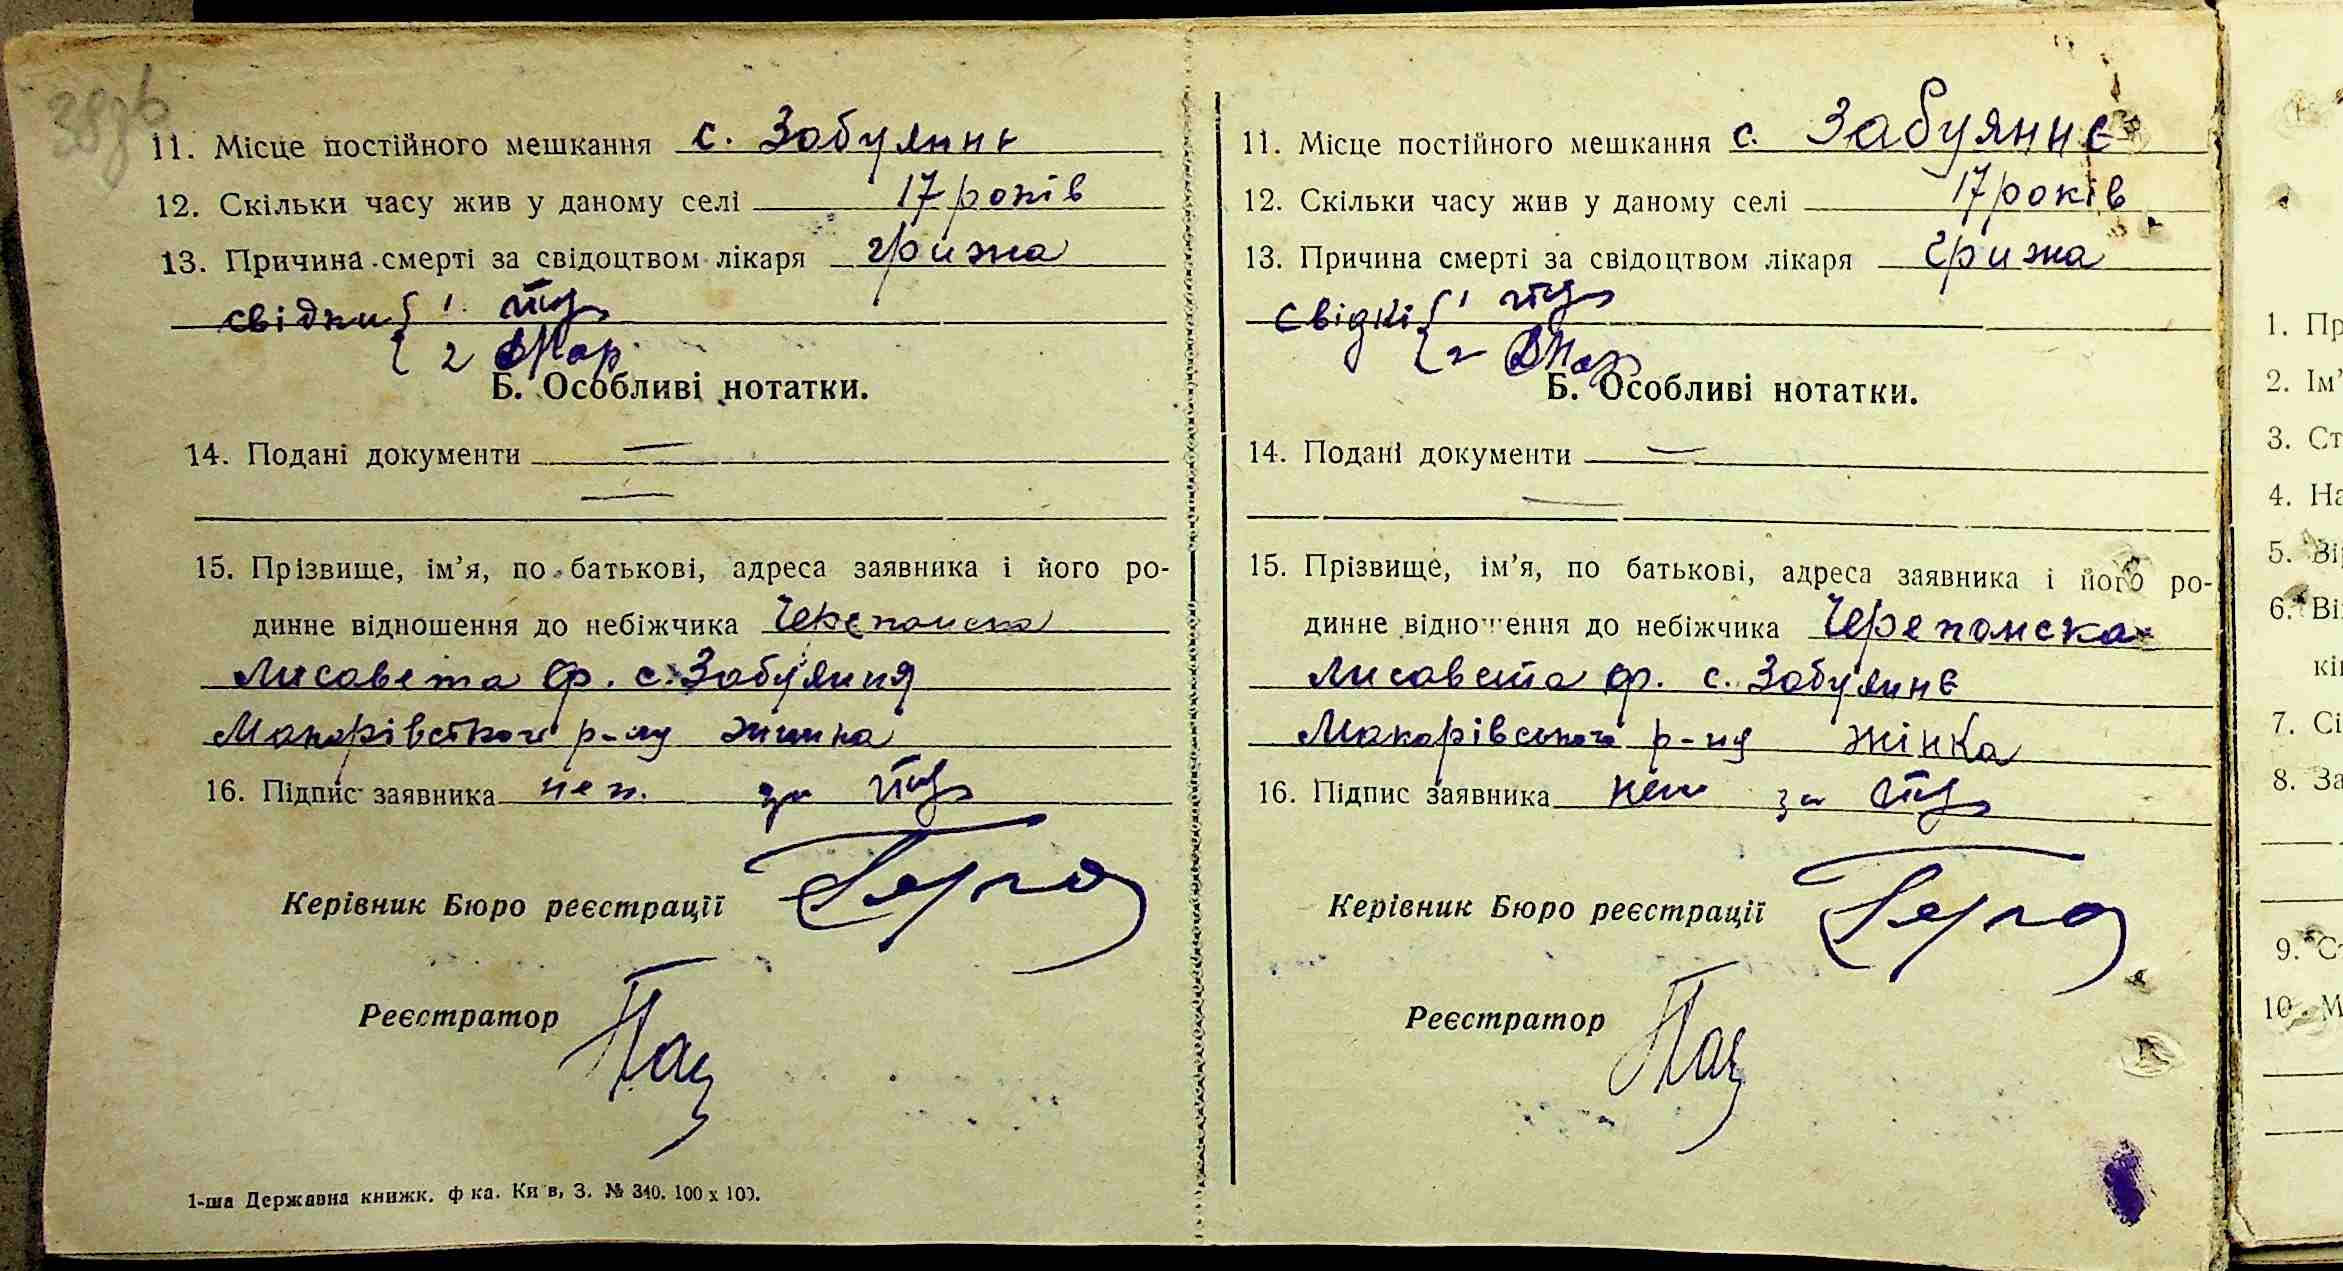 38зв
11. Місце постійного мешкання с. Забуяннє
12. Скільки часу жив у даному селі 17 років
13. Причина смерті за свідоцтвом лікаря грижа
свідки { 1.
{ 2
Б. Особливі нотатки.
14. Подані документи —
—
15. Прізвище, ім’я, по батькові, адреса заявника і його ро-
динне відношення до небіжчика
Лисавета Ф. с. Забуяння
Макарівського р-ну жинка
16. Підпис заявника неп. за
Керівник Бюро реєстрації
Реєстратор
1-ша Державна книжк. ф ка. Ки в, З. № 340. 100 x 100.
11. Місце постійного мешкання с. Забуяннє
12. Скільки часу жив у даному селі 17 років
13. Причина смерті за свідоцтвом лікаря грижа
свідкі { 1
{ 2
Б. Особливі нотатки.
14. Подані документи —
—
15. Прізвище, ім’я, по батькові, адреса заявника і його ро-
динне відношення до небіжчика
Лисавета Ф. с. Забуяннє
Макарівського р-ну жінка
16. Підпис заявника неп за
Керівник Бюро реєстрації
Реєстратор
1. Пр
2. Ім’
3. Ст
4. На
5. Ві
6. Ві
кі
7. Сі
8. За
9. С
10. М